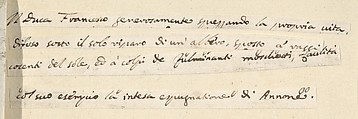 Il Duca Francesco generosamente sprezzando la propria vita,
difeso sotto il solo riparo di un' albero, esposto a' raggi
cocenti del sole, ed a' colpi de' fulminanti facilità
col suo esempio la intesa espugnazione di Annone.